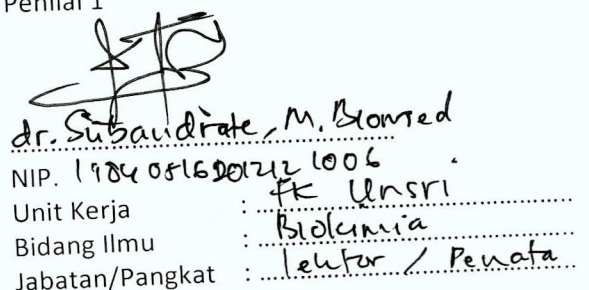 Penilai 1
dr. Subandrate, M. Biomed
NIP. 198405162012121006
Unit Kerja : FK Unsri
Bidang Ilmu : Biokimia
Jabatan/Pangkat : lektor / Penata